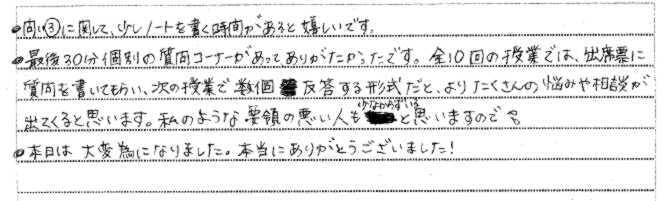 ●問い③に関して、少しノートを書く時間があると嬉しいです。
●最後30分個別の質問コーナーがあってありがたかったです。全10回の授業では、出席票に
質問を書いてもらい、次の授業で数個 反答する形式だと、よりたくさんの悩みや相談が
出てくると思います。私のような要領の悪い人も少なからずいると思いますので
●本日は大変為になりました。本当にありがとうございました！